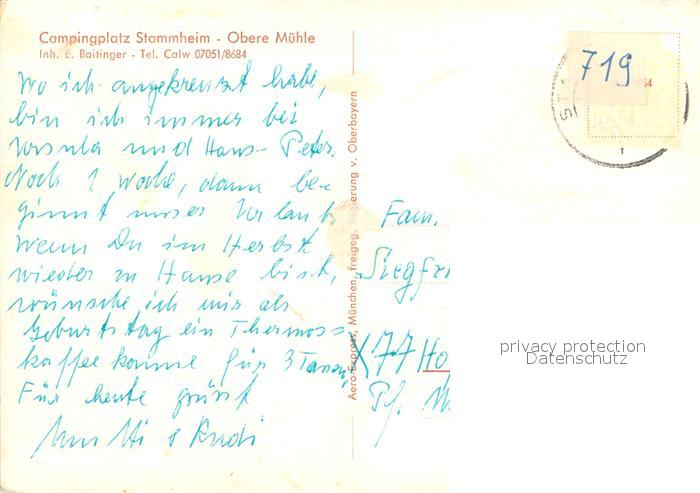 Campingplatz Stammheim - Obere Mühle
Inh. E. Baitinger - Tel. Calw 07051/8684
Wo ich angekreuzt habe,
bin ich immer bei
Ursula und Hans-Peter.
Noch 1 Woche, dann be-
ginnt unser Urlaub.
Wenn Du im Herbst
wieder zu Hause bist,
wünsche ich mir als
Geburtstag ein Thermos=
kaffeekanne für 3 Tassen,
Für heute grüsst
& Rudi
Aero-Express, München, freigeg. Regierung v. Oberbayern
719
Fam.
Siegfr
77 Ho
Pf.
privacy protection
Datenschutz